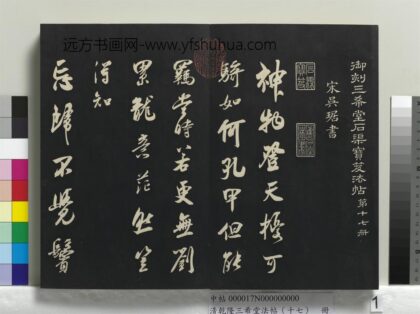 远方书画网-www.yfshuhua.com
御刻三希堂石渠寶笈法帖第十七冊
宋吳琚書
神物登天擾可
騎如何孔甲但能
羈當時若更無劉
累龍意茫然豈
得知
忘歸不覺鬢
中帖 000017N000000000
清乾隆三希堂法帖（十七） 册
1